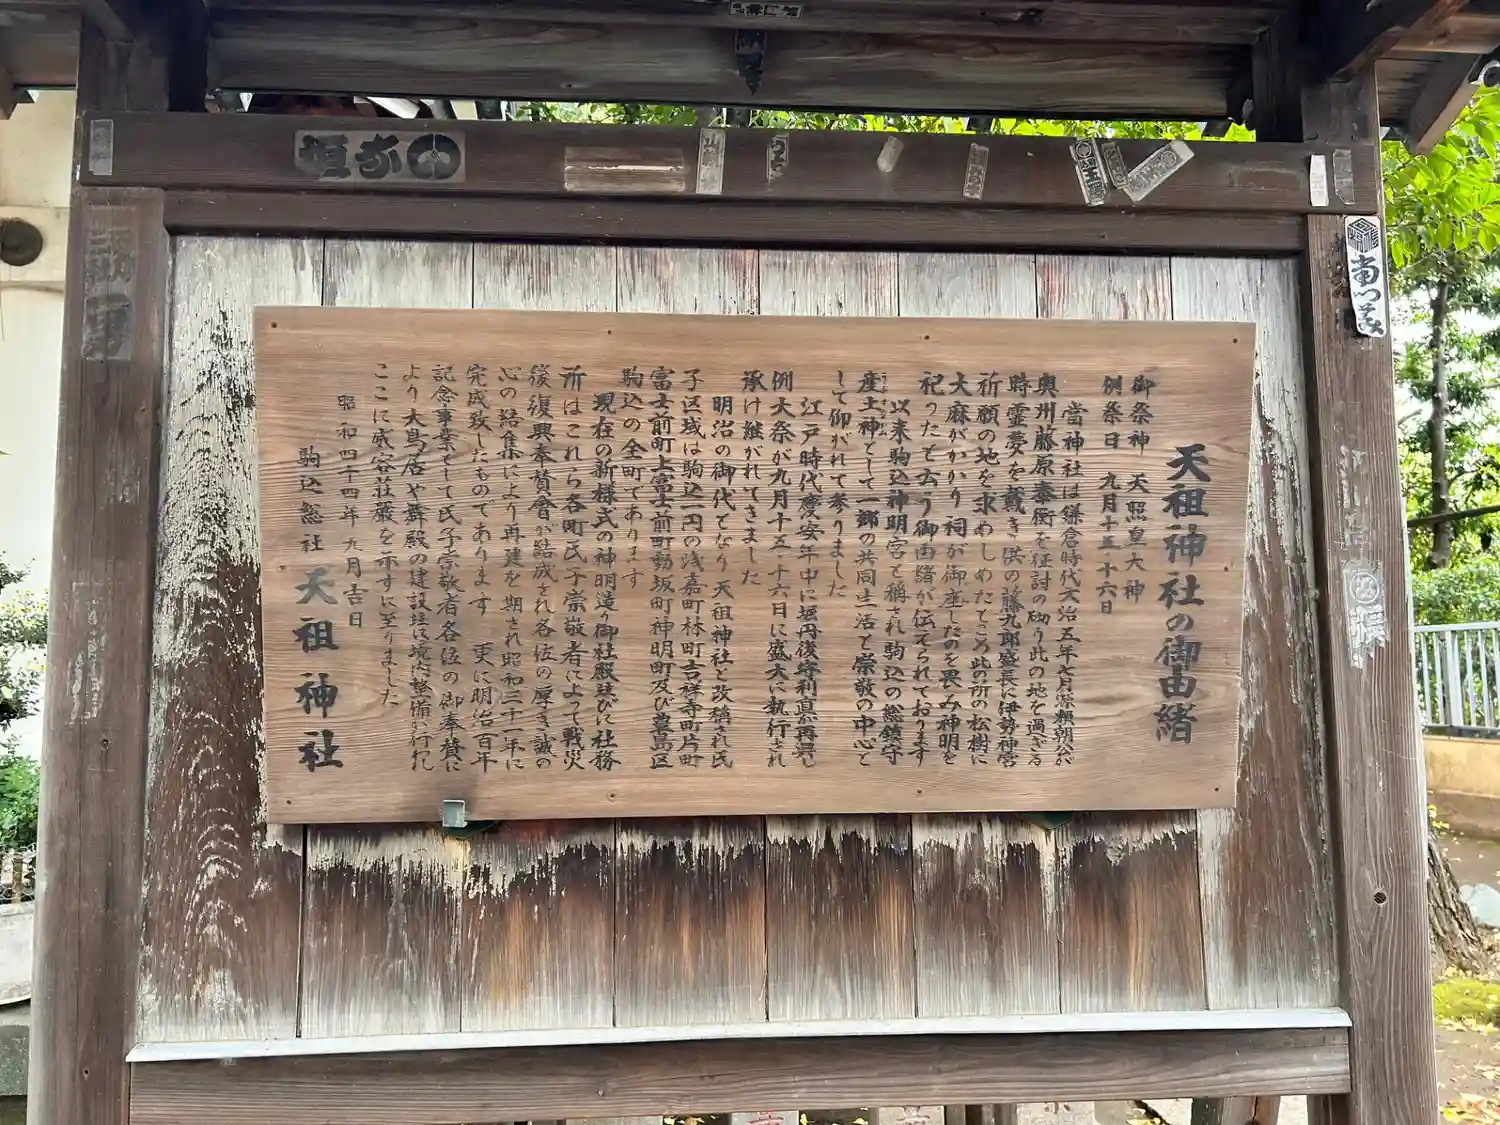 天祖神社の御由緒
御祭神 天照皇大神
例祭日 九月十五 十六日
當神社は鎌倉時代文治五年七月源頼朝公が
奥州藤原泰衡を征討の砌り此の地を過ぎる
時霊夢を戴き供の藤九郎盛長に伊勢神宮
祈願の地を求めしめたところ此の所の松樹に
大麻がかかり祠が御座したのを畏み神明を
祀ったと云う御由緒が伝えられております
以来駒込神明宮と稱され駒込の総鎮守
産土神として一郷の共同生活と崇敬の中心と
して御がれて参りました
江戸時代慶安年中に堀丹後守利直が再興し
例大祭が九月十五 十六日に盛大に執行され
承け継がれてきました
明治の御代となり天祖神社と改稱され氏
子区域は駒込一円の浅嘉町林町吉祥寺町片町
富士前町上富士前町動坂町神明町及び豊島区
駒込の全町であります
現在の新様式の神明造り御社殿並びに社務
所はこれら各町氏子崇敬者によって戦災
後復興奉賛會が結成され各位の厚き誠の
心の結集により再建を期され昭和三十一年に
完成致したものであります 更に明治百年
記念事業として氏子崇敬者各位の御奉賛に
より大鳥居や舞殿の建設並境内整備が行われ
ここに威容荘厳を示すに至りました
昭和四十四年九月吉日
駒込総社 天祖神社